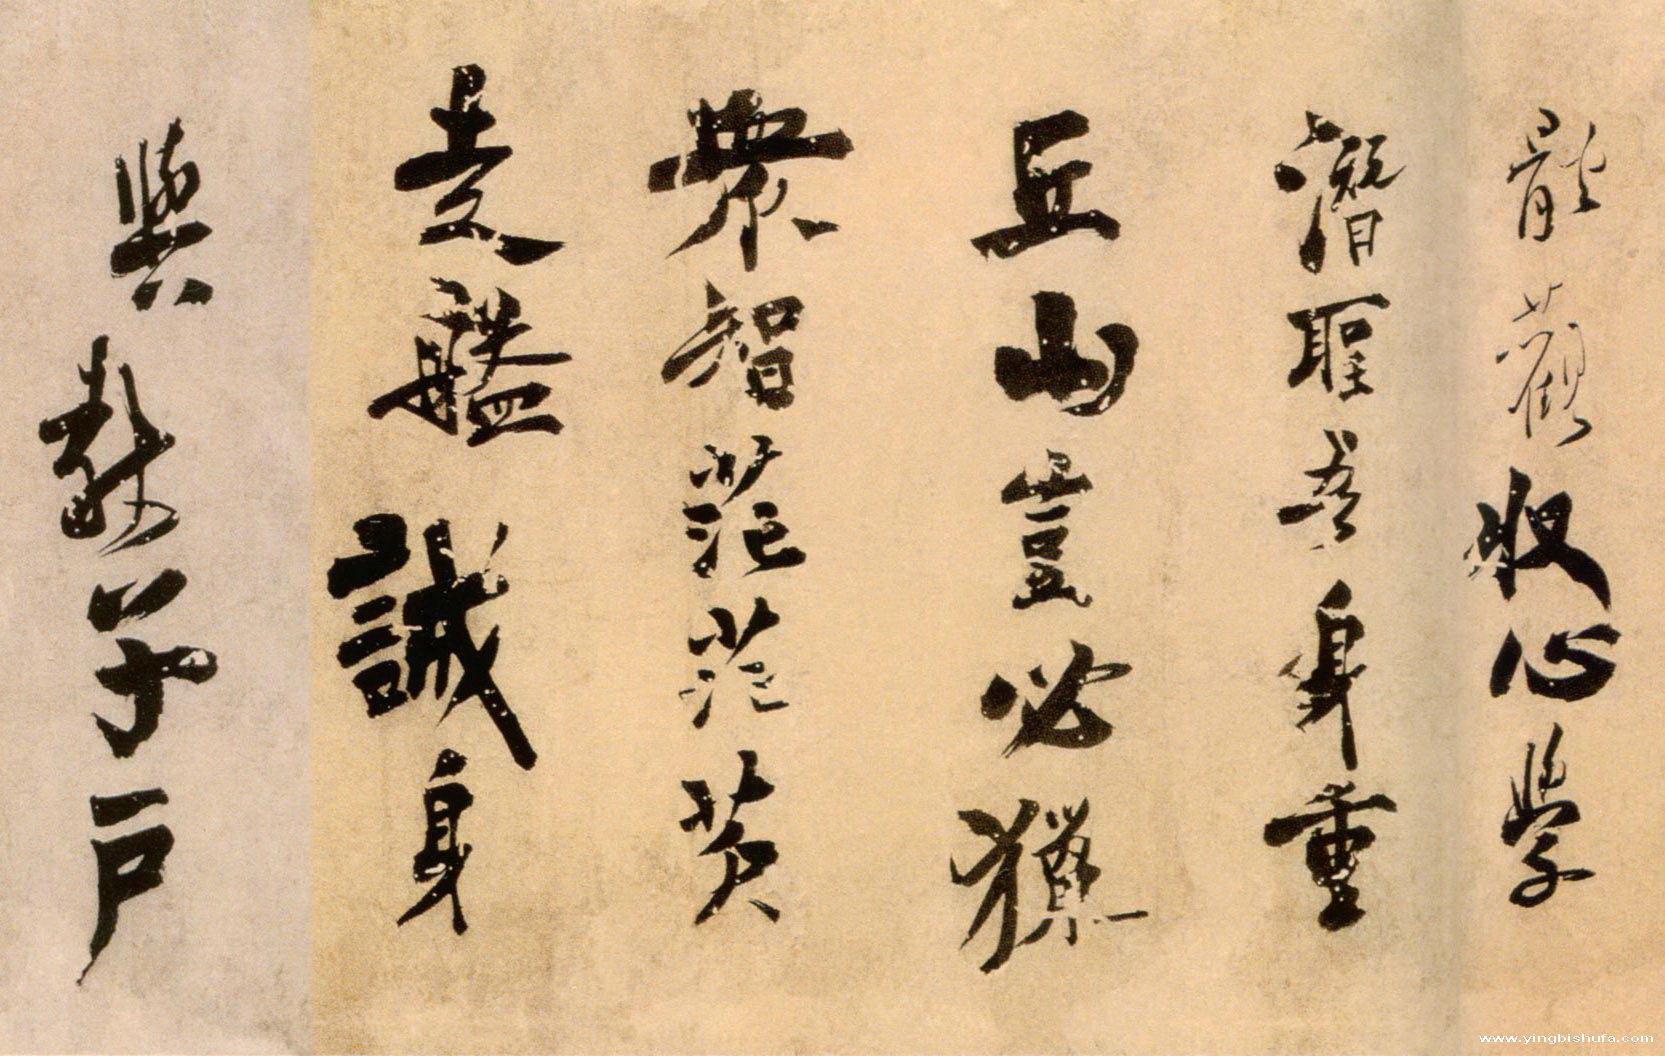 能觀收心學
潛聖吾身重
丘山豈必獵
衆智茫茫
艦誠身
與子戶
www.yingbishufa.com